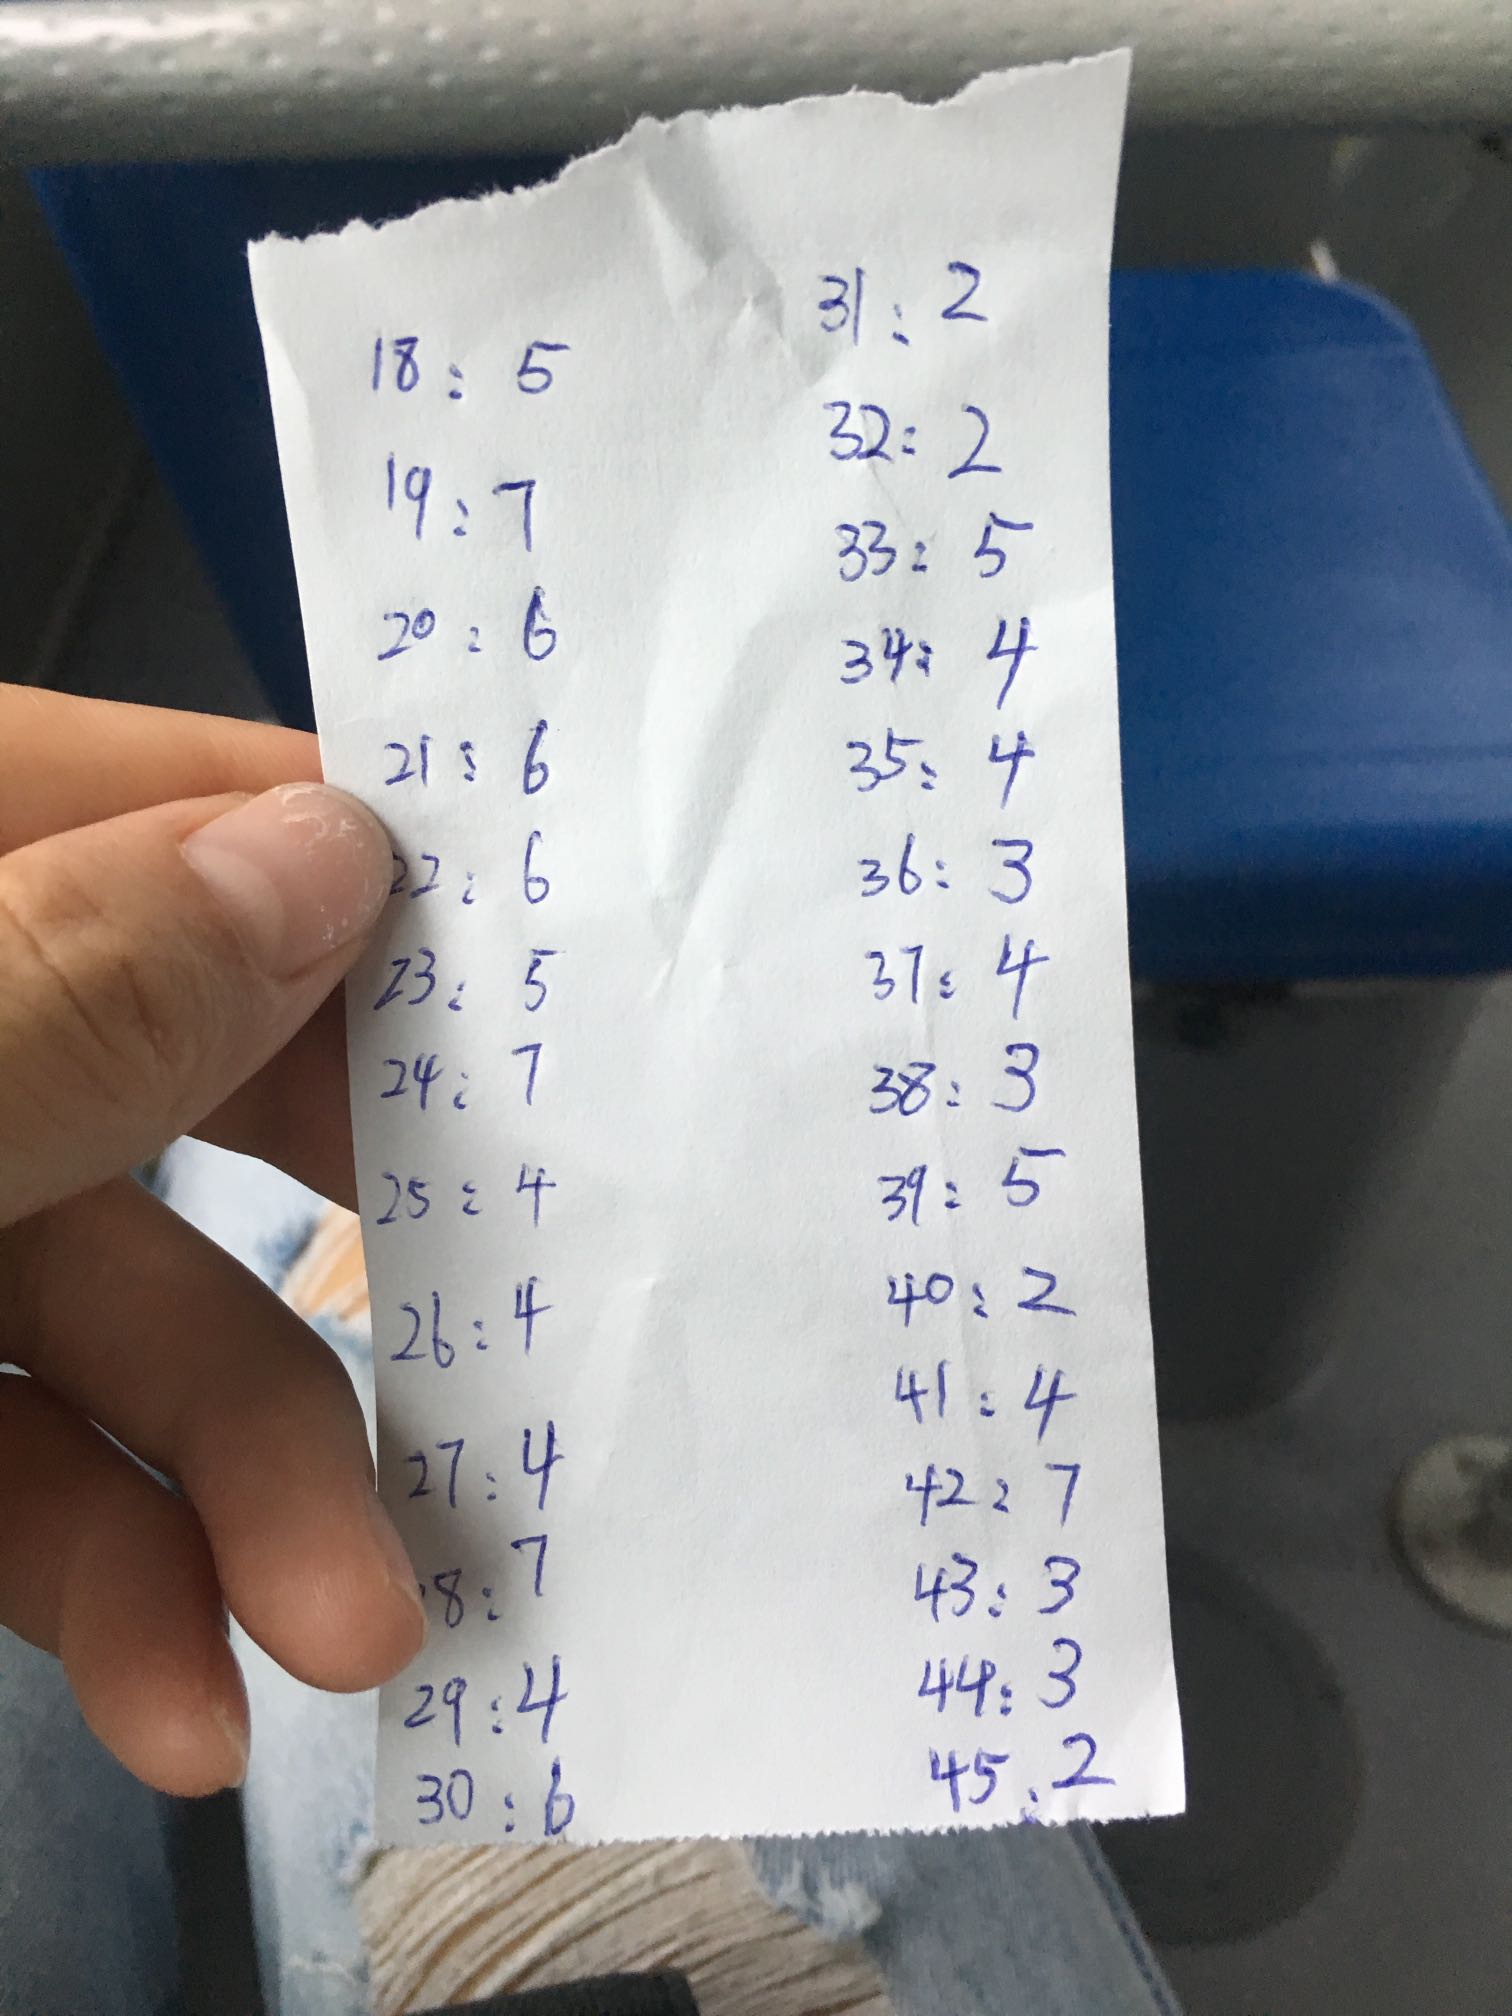 18: 5
19: 7
20: 6
21: 6
22: 6
23: 5
24: 7
25: 4
26: 4
27: 4
8: 7
29: 4
30: 6
31: 2
32: 2
33: 5
34: 4
35: 4
36: 3
37: 4
38: 3
39: 5
40: 2
41: 4
42: 7
43: 3
44: 3
45: 2